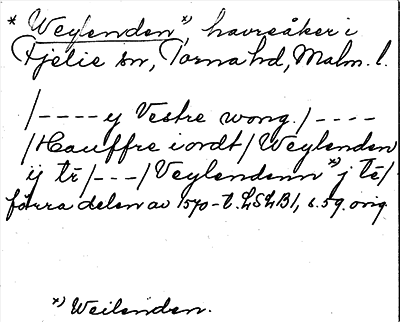 * Weylenden *), havreåker i
Fjelie sn, Torna hd, Malm. l.
/ - - - - y Vestre wong. / - - - -
/Hauffre iordt/ Weylenden
ij tr̄ / - - - / Veylendenn *) j tē /
förra delen av 1570-t. LSLB1, s. 59. orig
*) Weilenden.